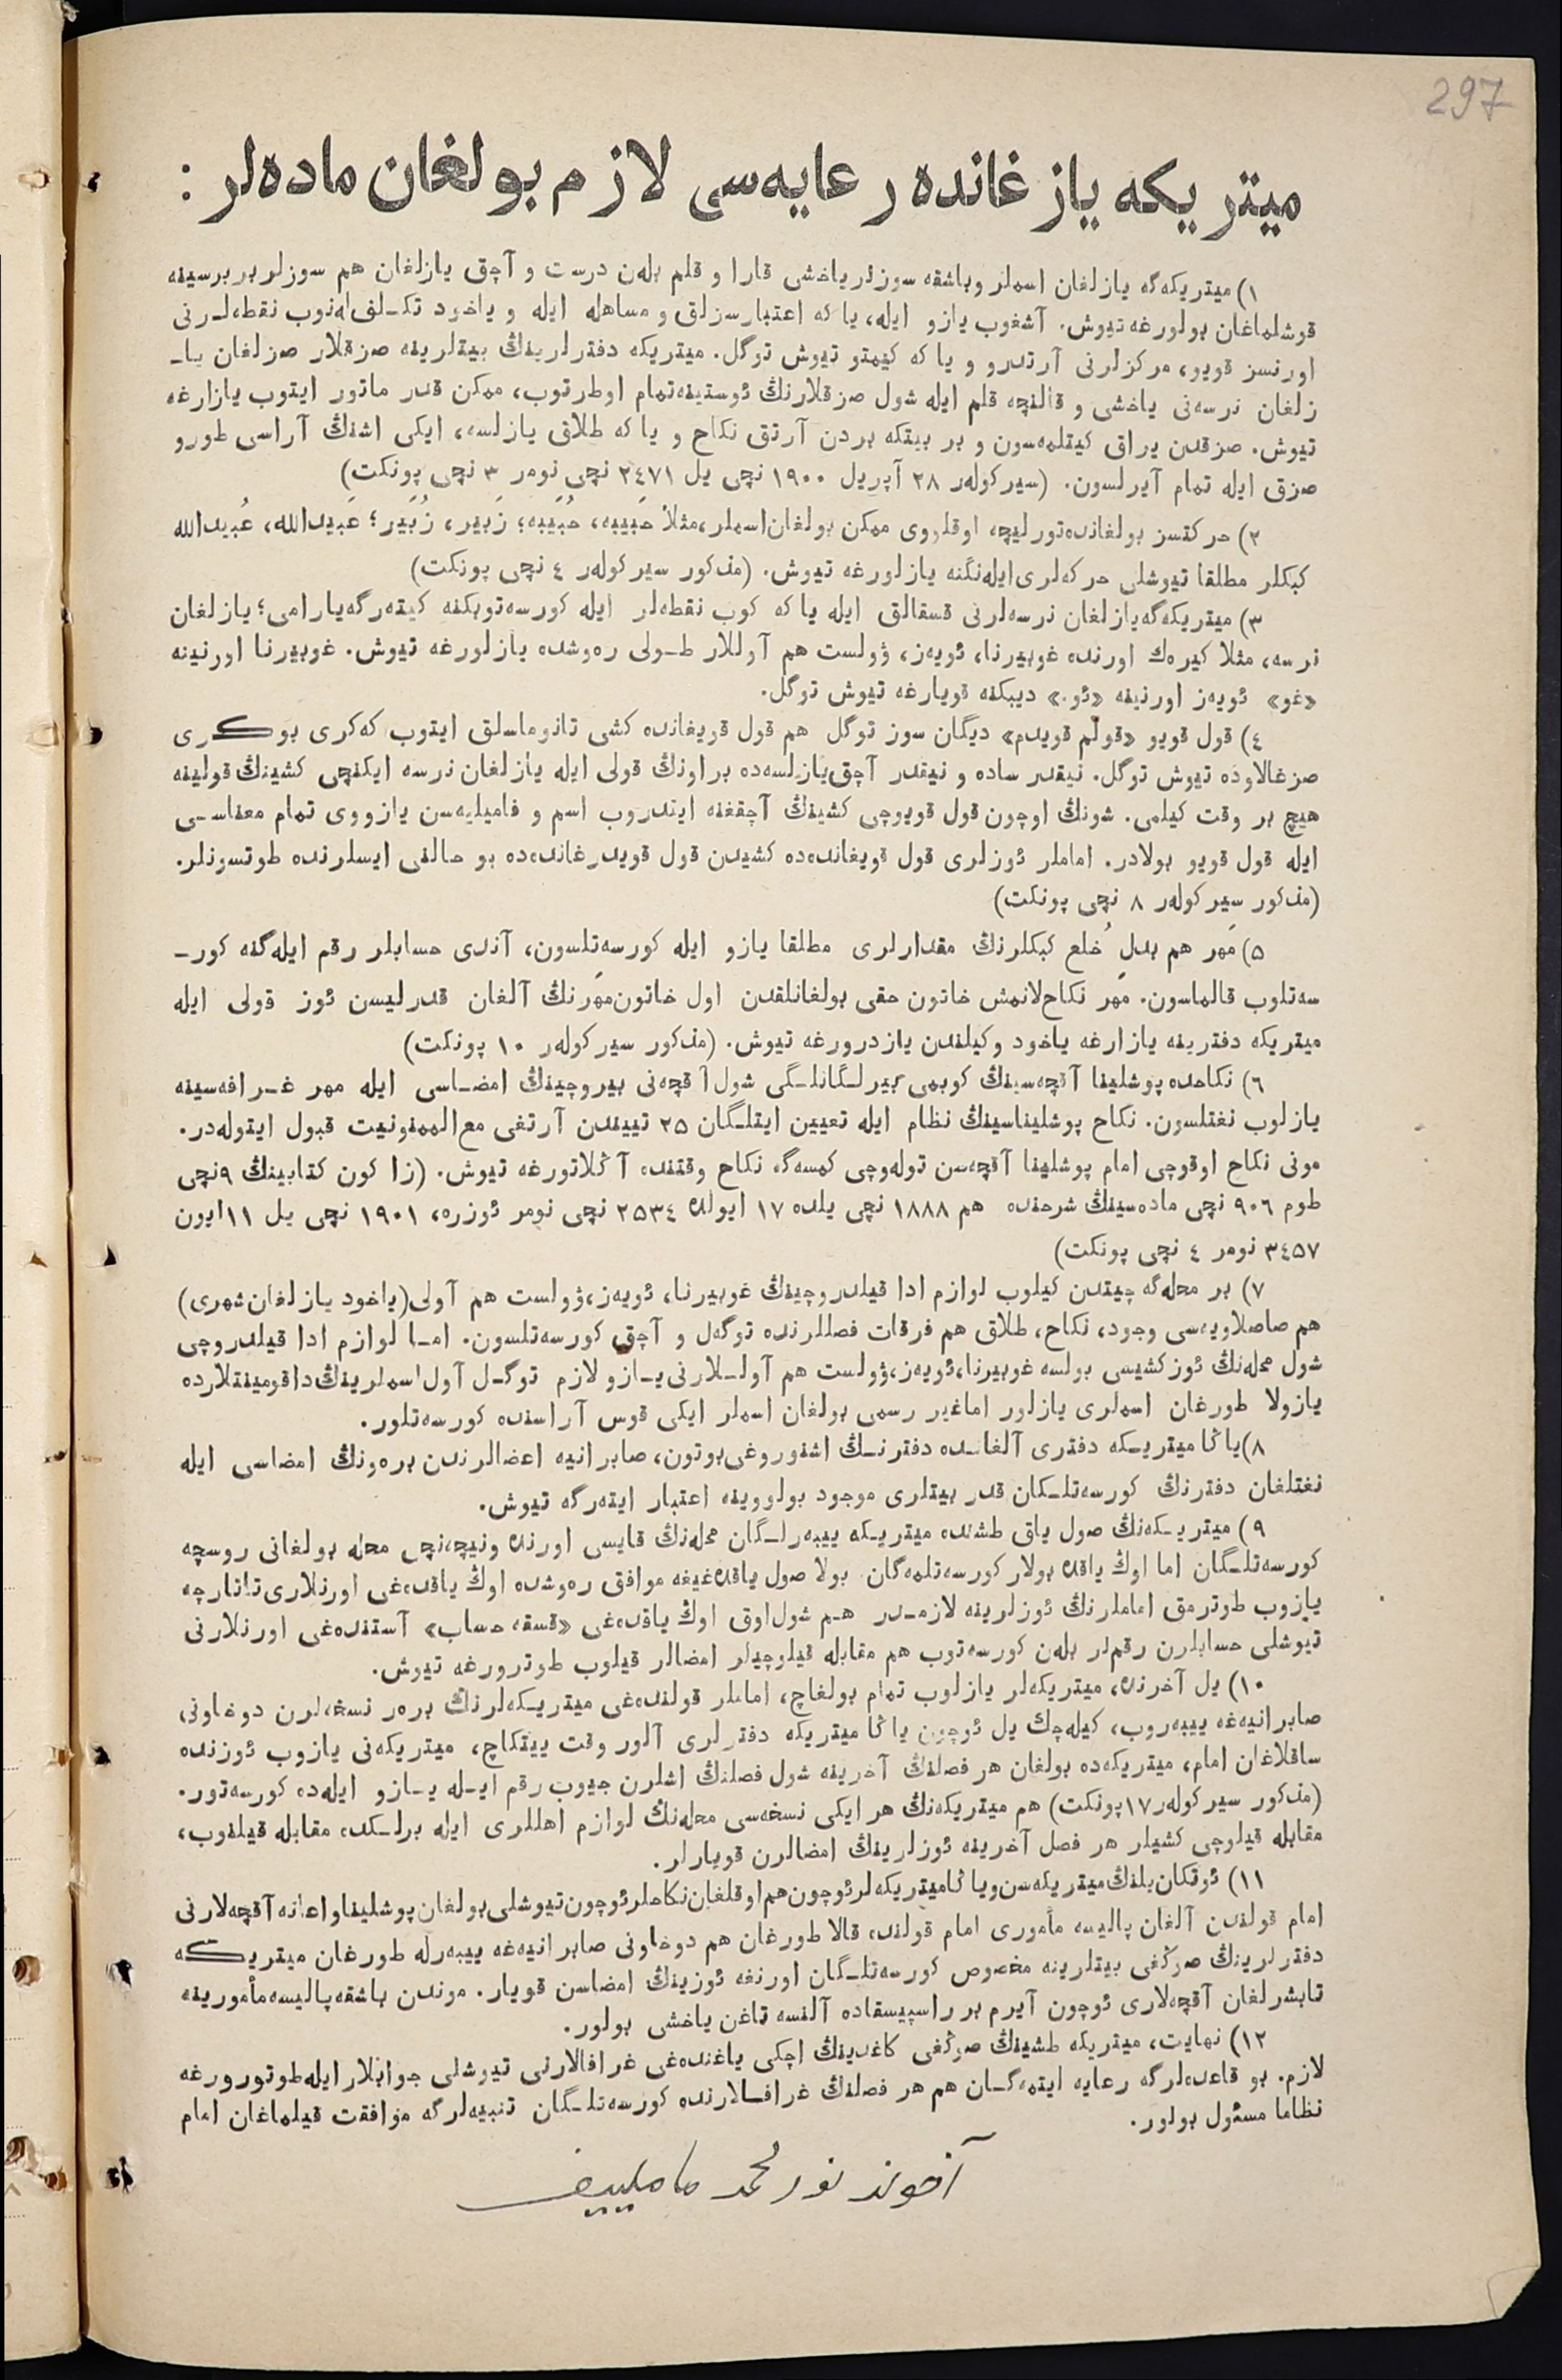 297
ميتريكه يازغانده رعايه‌سى لازم بولغان ماده‌لر :
١) ميتريكه‌گه يازلغان اسملر وباشقه سوزلرياخشى قارا و قلم بله‌ن درست و آچق يازلغان هم سوزلر بر برسينه
قوشلماغان بولورغه تيوش. آشغوب يازو ايله، يا كه اعتبارسزلق و مساهله ايله و ياخود تكـلف له‌نوب نقطه‌لـرنى
اورنسز قويو، مركزلرنى آرتدرو و يا كه كيمتو تيوش توگل. ميتريكه دفترلرينڭ بيتلرينه صزقلار صزلغان يا-
زلغان نرسه‌نى ياخشى و قالنچه قلم ايله شول صزقلارنڭ ئوستينه‌تمام اوطرتوب، ممكن قدر ماتور ايتوب يازارغه
تيوش. صزقدن يراق كيتلمه‌سون و بر بيتكه بردن آرتق نكاح و يا كه طلاق يازلسه، ايكى اشنڭ آراسى طورو
صزق ايله تمام آيرلسون. (سيركوله‌ر ٢٨ آپريل ١٩٠٠ نچى يل ٢٤٧١ نچى نومر ٣ نچى پونكت)
٢) حركتسز بولغانده‌تورليچه اوقلووى ممكن بولغان‌اسملر،مثلا حَبيبه، حُبَيبه؛ زَبير، زُبَير؛ عَبيدالله، عُبيدالله
كبكلر مطلقا تيوشلى حركه‌لرى‌ايله‌نگنه يازلورغه تيوش. (مذكور سيركوله‌ر ٤ نچى پونكت)
٣) ميتريكه‌گه‌يازلغان نرسه‌لرنى قسقالق ايله يا كه كوب نقطه‌لر ايله كورسه‌توبكنه كيته‌رگه‌يارامى؛ يازلغان
نرسه، مثلا كيره‌ك اورنده غوبيرنا، ئويه‌ز، ۋولست هم آوللار طـولى ره‌وشده يازلورغه تيوش. غوبيرنا اورنينه
«غو» ئويه‌ز اورنينه «ئو.» ديبكنه قويارغه تيوش توگل.
٤) قول قويو «قولم قويدم» ديگان سوز توگل هم قول قويغانده كشى تانوماسلق ايتوب كه‌كرى بوكرى
صزغالاوده تيوش توگل. نيقدر ساده و نيقدر آچق‌يازلسه‌ده براونڭ قولى ايله يازلغان نرسه ايكنچى كشينڭ قولينه
هيچ بر وقت كيلمى. شونڭ اوچون قول قويوچى كشينڭ آچقغنه ايتدروب اسم و فاميليه‌سن يازووى تمام معناسـى
ايله قول قويو بولادر. اماملر ئوزلرى قول قويغانده‌ده كشيدن قول قويدرغانده‌ده بو حالنى ايسلرنده طوتسونلر.
(مذكور سيركوله‌ر ٨ نچى پونكت)
٥) مَهر هم بدلِ خُلع كبكلرنڭ مقدارلرى مطلقا يازو ايله كورسه‌تلسون، آندى حسابلر رقم ايله‌گنه كور-
سه‌تلوب قالماسون. مَهر نكاح‌لانمش خاتون حقى بولغانلقدن اول خاتون‌مَهرنڭ آلغان قدرليسن ئوز قولى ايله
ميتريكه دفترينه يازارغه ياخود وكيلندن يازدرورغه تيوش. (مذكور سيركوله‌ر ١٠ پونكت)
٦) نكاحده پوشلينا آقچه‌سينڭ كوبمى بيرلـگانلـگى شول آقچه‌نى بيروچينڭ امضـاسى ايله مهر غـرافه‌سينه
يازلوب نغتلسون. نكاح پوشليناسينڭ نظام ايله تعيين ايتلـگان ٢٥ تييندن آرتغى مع‌الممنونيت قبول ايتوله‌در.
مونى نكاح اوقوچى امام پوشلينا آقچه‌سن توله‌وچى كمسه‌گه نكاح وقتنده آڭلاتورغه تيوش. (زاكون كتابينڭ ٩نچى
طوم ٩٠٦ نچى ماده‌سينڭ شرحنده هم ١٨٨٨ نچى يلده ١٧ ايولده ٢٥٣٤ نچى نومر ئوزره، ١٩٠١ نچى يل ١١ايون
٣٤٥٧ نومر ٤ نچى پونكت)
٧) بر محله‌گه چيتدن كيلوب لوازم ادا قيلدروچينڭ غوبيرنا، ئويه‌ز،ۋولست هم آولى(ياخود يازلغان‌شهرى)
هم صاصلاويه‌سى وجود، نكاح، طلاق هم فرقات فصللرنده توگه‌ل و آچق كورسه‌تلسون. امـا لوازم ادا قيلدروچى
شول محله‌نڭ ئوزكشيسى بولسه غوبيرنا،ئويه‌ز،ۋولست هم آولـلارنى‌يـازو لازم توگـل آول‌اسملرينڭ‌داقومينتلارده
يازولا طورغان اسملرى يازلور اماغير رسمى بولغان اسملر ايكى قوس آراسنده كورسه‌تلور.
٨)ياڭا ميتريـكه دفترى آلغانـده دفترنـڭ اشنوروغى‌بوتون، صابرانيه اعضالرندن بره‌ونڭ امضاسى ايله
نغتلغان دفترنڭ كورسه‌تلـكان قدر بيتلرى موجود بولووينه اعتبار ايته‌رگه تيوش.
٩) ميتريـكه‌نڭ صول ياق طشنده ميتريـكه ييبه‌رلـگان محله‌نڭ قايسى اورنده ونيچه‌نچى محله بولغانى روسچه
كورسه‌تلـگان اما اوڭ ياقده بولار كورسه‌تلمه‌گان بولا صول ياقده‌غيغه موافق ره‌وشده اوڭ ياقده‌غى اورنلارى‌تاتارچه
يازوب طوترمق اماملرنڭ ئوزلرينه لازمـدر هـم شول‌اوق اوڭ ياقده‌غى «قسقه حساب» آستنده‌غى اورنلارنى
تيوشلى حسابلرن رقم‌لر بله‌ن كورسه‌توب هم مقابله قيلوچيلر امضالر قيلوب طوترورغه تيوش.
١٠) يل آخرنده، ميتريكه‌لر يازلوب تمام بولغاچ، اماملر قولنده‌غى ميتريـكه‌لرنڭ بره‌ر نسخه‌لرن دوخاونى
صابرانيه‌غه ييبه‌روب، كيله‌چك يل ئوچون ياڭا ميتريكه دفترلرى آلور وقت ييتكاچ، ميتريكه‌نى يازوب ئوزنده
ساقلاغان امام، ميتريكه‌ده بولغان هر فصلنڭ آخرينه شول فصلنڭ اشلرن جيوب رقم ايـله يـازو ايله‌ده كورسه‌تور.
(مذكور سيركوله‌ر١٧پونكت) هم ميتريكه‌نڭ هر ايكى نسخه‌سى محله‌نڭ لوازم اهللرى ايله برلـكده مقابله قيلنوب،
مقابله قيلوچى كشيلر هر فصل آخرينه ئوزلرينڭ امضالرن قويارلر.
١١) ئوتكان‌يلنڭ‌ميتريكه‌سن‌وياڭاميتريكه‌لرئوچون‌هم‌اوقلغان‌نكاحلرئوچون‌تيوشلى‌بولغان‌پوشليناواعانه‌آقچه‌لارنى
امام قولندن آلغان پاليسه مأمورى امام قولنده قالا طورغان هم دوخاونى صابرانيه‌غه ييبه‌رله طورغان ميتريكه
دفترلرينڭ صوڭغى بيتلرينه مخصوص كورسه‌تلـگان اورنغه ئوزينڭ امضاسن قويار. موندن باشقه‌پاليسه‌مأمورينه
تابشرلغان آقچه‌لارى ئوچون آيرم بر راسپيسقاده آلنسه تاغن ياخشى بولور.
١٢) نهايت، ميتريكه طشينڭ صوڭغى كاغدينڭ اچكى ياغنده‌غى غرافالارنى تيوشلى جوابلار ايله‌طوتورورغه
لازم. بو قاعده‌لرگه رعايه ايتمه‌گـان هم هر فصلنڭ غرافـالارنده كورسه‌تلـگان تنبيه‌لرگه موافقت قيلماغان امام
نظاما مسئول بولور.
آخوند نورمحمد ماملييف